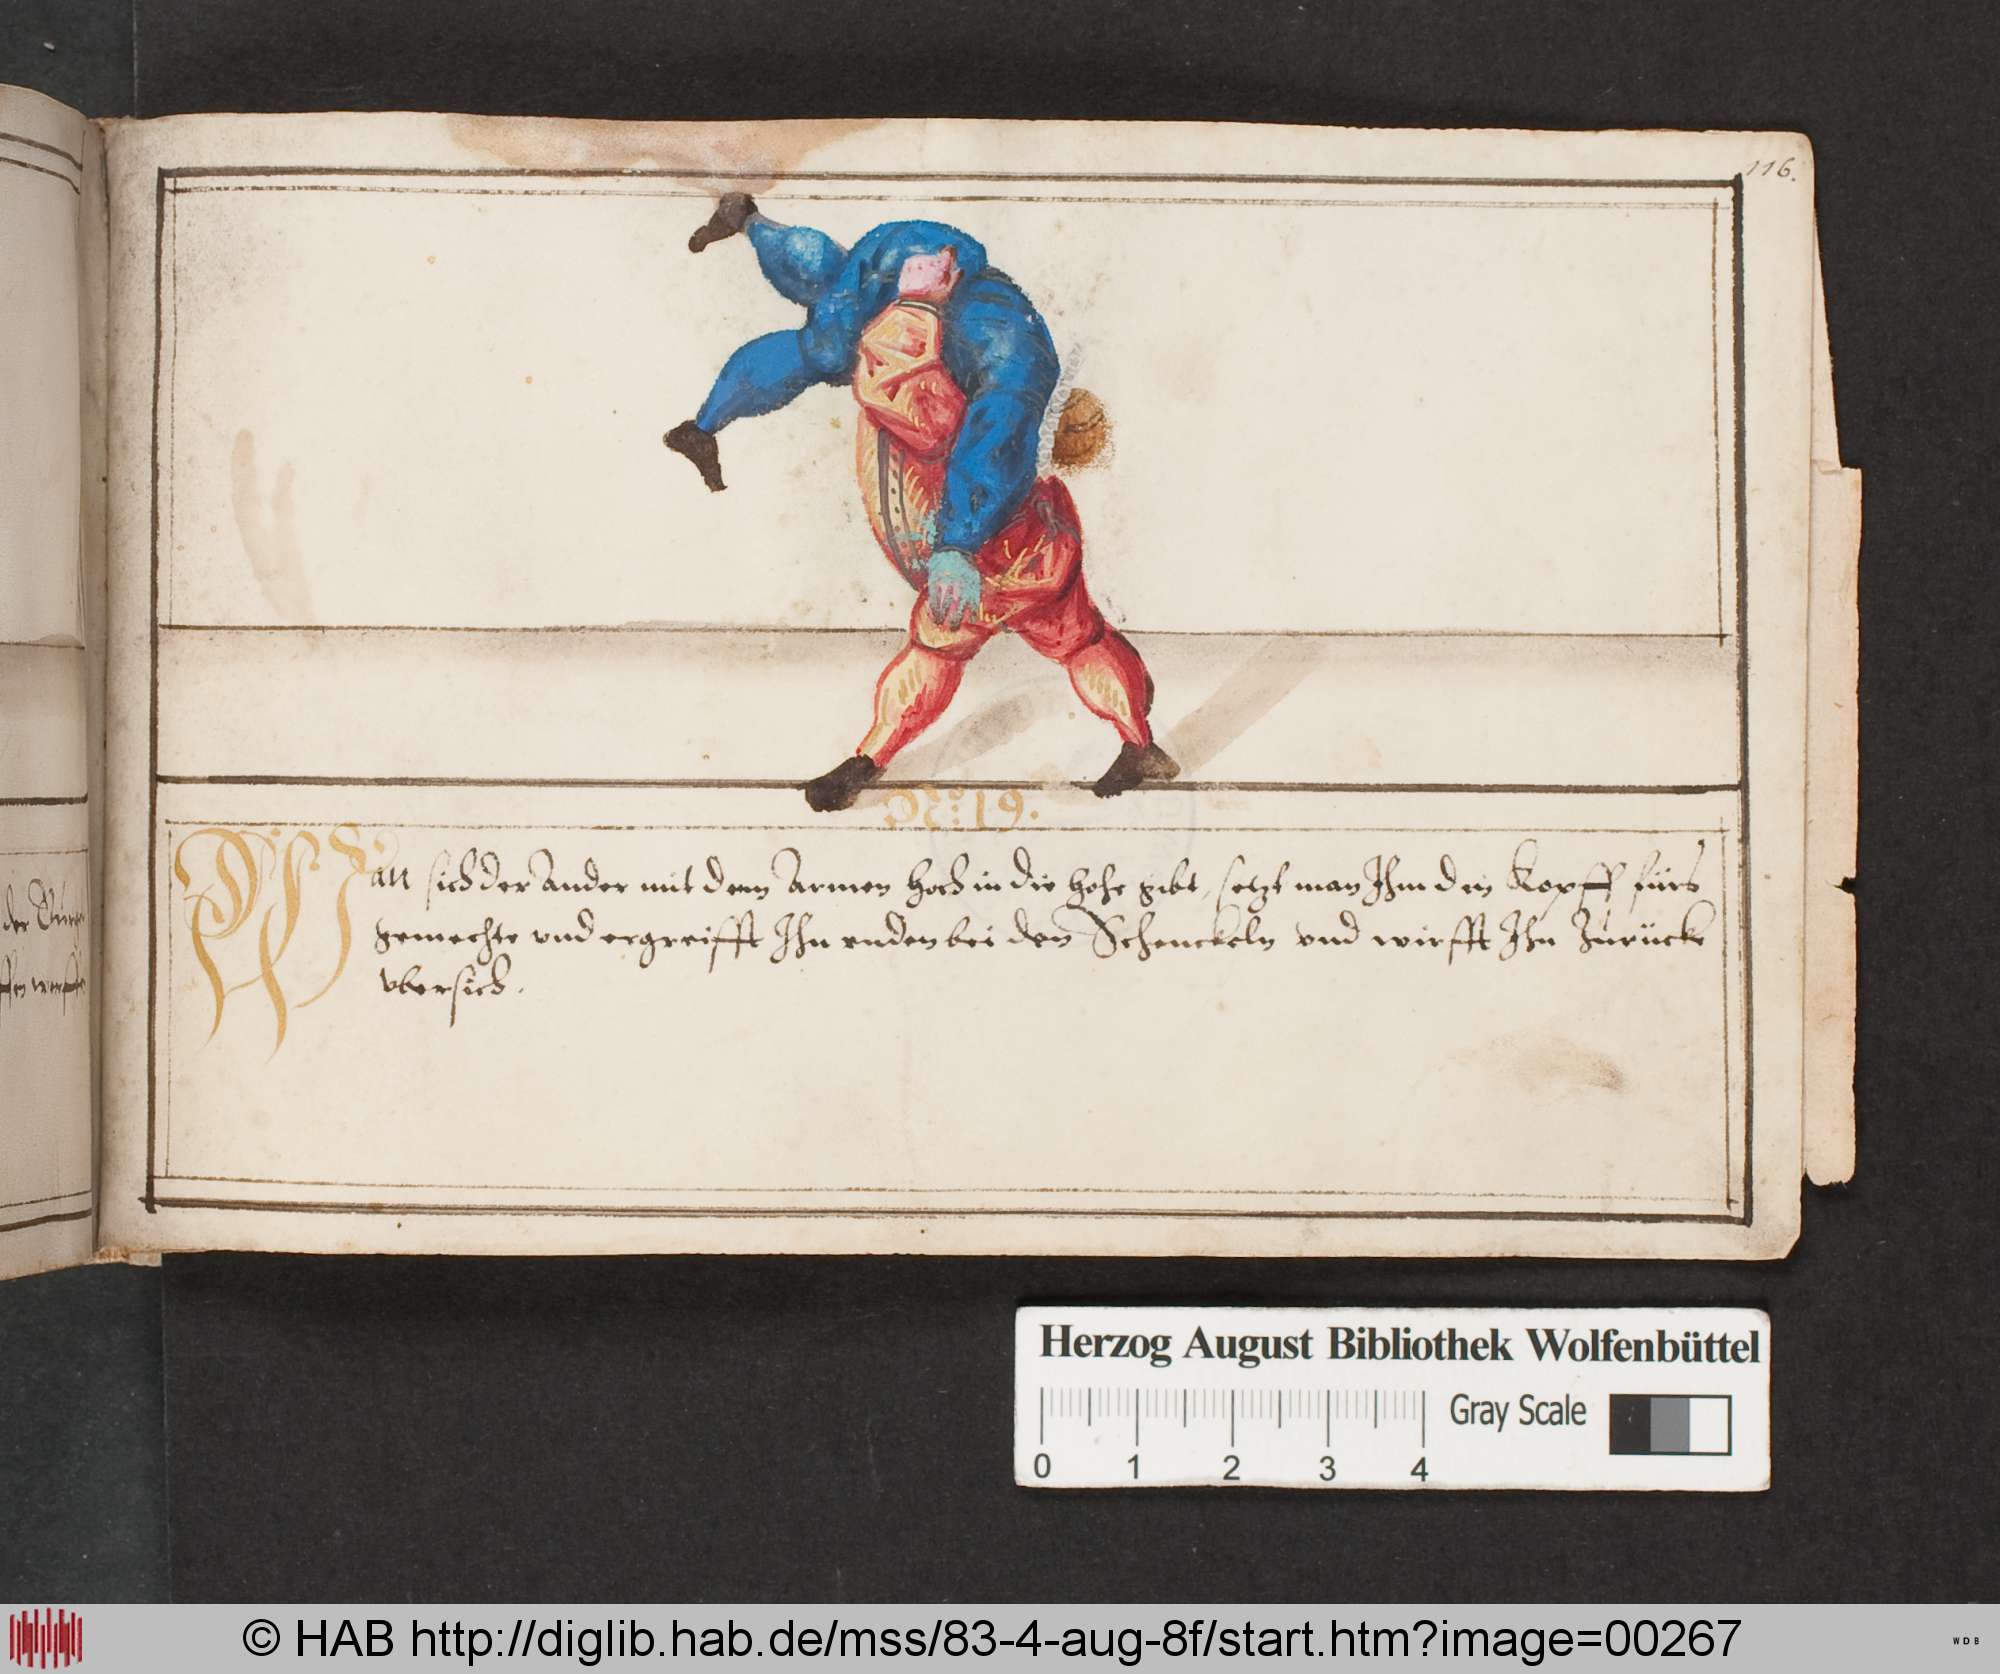 116.
No: 19.
Wan sich der Ander mit dem Armen hoch in die hohe gibt, setzt man Ihm den Kopff fürs
gemechte vnd ergreifft Ihn vnden bei den Schenckeln vnd wirfft Ihn Zurücke
vbersich.
der
Herzog August Bibliothek Wolfenbüttel
Gray Scale
0 1 2 3 4
© HAB http://diglib.hab.de/mss/83-4-aug-8f/start.htm?image=00267
WDB